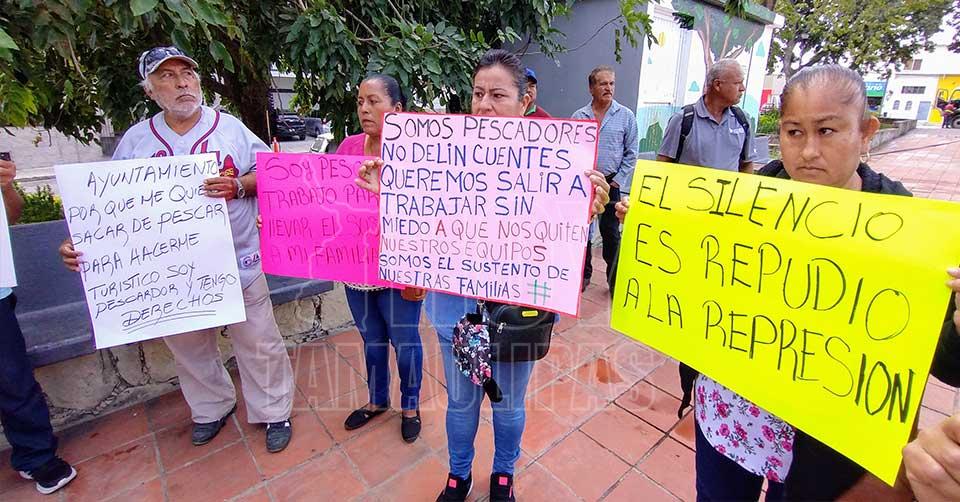 AYUNTAMIENTO
PORQUE ME QUIE
SACAR DE PESCAR
PARA HACERME
TURISTICO SOY
PESCARDOR Y TENGO
DERECHOS
SOY PES
TRABAJO PAR
LLEVAR EL SUS
A MI FAMILIA
SOMOS PESCADORES
NO DELIN CUENTES
QUEREMOS SALIR A
TRABAJAR SIN
MIEDO A QUE NOS QUITEN
NUESTROS EQUIPOS
SOMOS EL SUSTENTO DE
NUESTRAS FAMILIAS #
EL SILENCIO
ES REPUDIO
A LA REPRESION
TAMAULIPAS